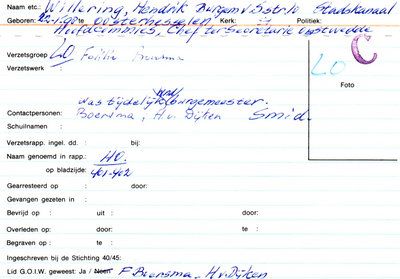 Naam etc.: Willering, Hendrik Burgem v Sstrlo Stadskanaal
Geboren: 22-1-90 te Oosterhesselen Kerk: Politiek:
Hoofdcommies, Chef ter Secretarie Onstwedde
Verzetsgroep LO Familie Boersma
LO C
Verzetswerk :
Foto
was tijdelijk burgemeester.
Contactpersonen: Boersma, H.v. Dijken Smid.
Schuilnamen :
Verzetsrapp. ingel. dd. : bij:
Naam genoemd in rapp.: HO.
op bladzijde: 461-462
Gearresteerd op : door:
Gevangen gezeten in :
Bevrijd op : uit : door:
Overleden op: door: te :
Begraven op : te :
Ingeschreven bij de Stichting 40/45:
Lid G.O.I.W. geweest: Ja / Neen F Boersma, H.v. Dijken